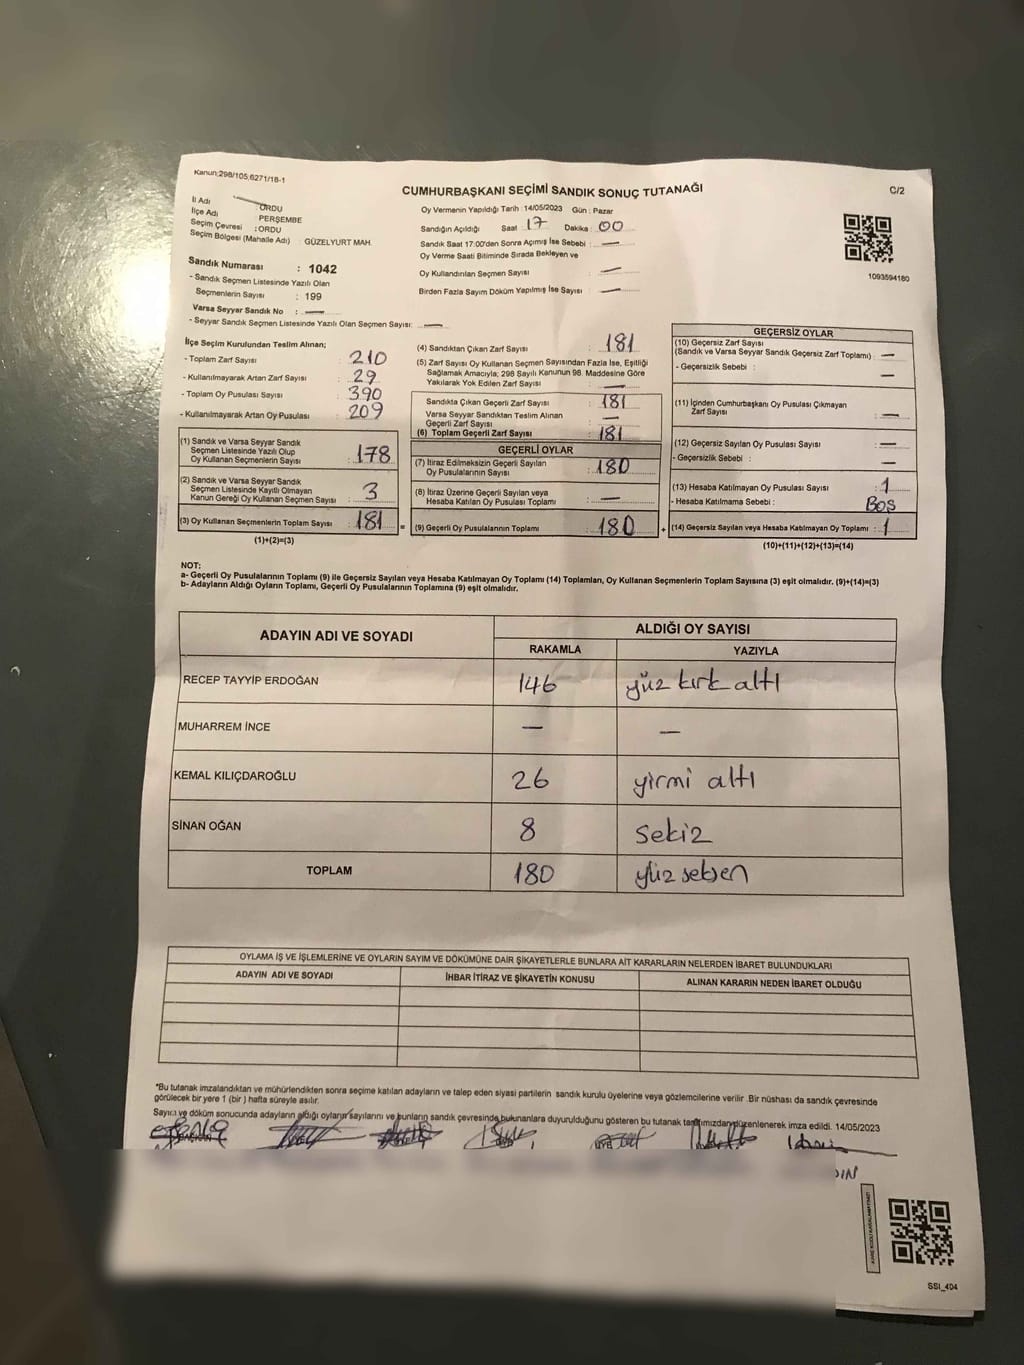 Kanun;298/105;6271/18-1
CUMHURBAŞKANI SEÇİMİ SANDIK SONUÇ TUTANAĞI
C/2
İl Adı ORDU
İlçe Adı PERŞEMBE
Seçim Çevresi : ORDU
Seçim Bölgesi (Mahalle Adı) : GÜZELYURT MAH.
Oy Vermenin Yapıldığı Tarih : 14/05/2023 Gün : Pazar
Sandığın Açıldığı Saat 17 Dakika : 00
Sandık Saat 17:00'den Sonra Açımış İse Sebebi : —
Oy Verme Saati Bitiminde Sırada Bekleyen ve
Oy Kullandırılan Seçmen Sayısı : —
Birden Fazla Sayım Döküm Yapılmış İse Sayısı : —
1093594180
Sandık Numarası : 1042
- Sandık Seçmen Listesinde Yazılı Olan
Seçmenlerin Sayısı : 199
Varsa Seyyar Sandık No : —
- Seyyar Sandık Seçmen Listesinde Yazılı Olan Seçmen Sayısı: —
İlçe Seçim Kurulundan Teslim Alınan;
- Toplam Zarf Sayısı : 210
- Kullanılmayarak Artan Zarf Sayısı : 29
- Toplam Oy Pusulası Sayısı : 390
- Kullanılmayarak Artan Oy Pusulası : 209
(1) Sandık ve Varsa Seyyar Sandık
Seçmen Listesinde Yazılı Olup
Oy Kullanan Seçmenlerin Sayısı : 178
(2) Sandık ve Varsa Seyyar Sandık
Seçmen Listesinde Kayıtlı Olmayan
Kanun Gereği Oy Kullanan Seçmen Sayısı : 3
(3) Oy Kullanan Seçmenlerin Toplam Sayısı : 181 =
(1)+(2)=(3)
(4) Sandıktan Çıkan Zarf Sayısı : 181
(5) Zarf Sayısı Oy Kullanan Seçmen Sayısından Fazla İse, Eşitliği
Sağlamak Amacıyla; 298 Sayılı Kanunun 98. Maddesine Göre
Yakılarak Yok Edilen Zarf Sayısı : —
Sandıkta Çıkan Geçerli Zarf Sayısı : 181
Varsa Seyyar Sandıktan Teslim Alınan
Geçerli Zarf Sayısı : —
(6) Toplam Geçerli Zarf Sayısı : 181
GEÇERLİ OYLAR
(7) İtiraz Edilmeksizin Geçerli Sayılan
Oy Pusulalarının Sayısı : 180
(8) İtiraz Üzerine Geçerli Sayılan veya
Hesaba Katılan Oy Pusulası Toplamı : —
(9) Geçerli Oy Pusulalarının Toplamı : 180 +
GEÇERSİZ OYLAR
(10) Geçersiz Zarf Sayısı
(Sandık ve Varsa Seyyar Sandık Geçersiz Zarf Toplamı) : —
- Geçersizlik Sebebi : —
(11) İçinden Cumhurbaşkanı Oy Pusulası Çıkmayan
Zarf Sayısı : —
(12) Geçersiz Sayılan Oy Pusulası Sayısı : —
- Geçersizlik Sebebi : —
(13) Hesaba Katılmayan Oy Pusulası Sayısı : 1
- Hesaba Katılmama Sebebi : BOŞ
(14) Geçersiz Sayılan veya Hesaba Katılmayan Oy Toplamı : 1
(10)+(11)+(12)+(13)=(14)
NOT:
a- Geçerli Oy Pusulalarının Toplamı (9) ile Geçersiz Sayılan veya Hesaba Katılmayan Oy Toplamı (14) Toplamları, Oy Kullanan Seçmenlerin Toplam Sayısına (3) eşit olmalıdır. (9)+(14)=(3)
b- Adayların Aldığı Oyların Toplamı, Geçerli Oy Pusulalarının Toplamına (9) eşit olmalıdır.
ADAYIN ADI VE SOYADI
ALDIĞI OY SAYISI
RAKAMLA YAZIYLA
RECEP TAYYİP ERDOĞAN 146 yüz kırk altı
MUHARREM İNCE — —
KEMAL KILIÇDAROĞLU 26 yirmi altı
SİNAN OĞAN 8 sekiz
TOPLAM 180 yüz seksen
OYLAMA İŞ VE İŞLEMLERİNE VE OYLARIN SAYIM VE DÖKÜMÜNE DAİR ŞİKAYETLERLE BUNLARA AİT KARARLARIN NELERDEN İBARET BULUNDUKLARI
ADAYIN ADI VE SOYADI İHBAR İTİRAZ VE ŞİKAYETİN KONUSU ALINAN KARARIN NEDEN İBARET OLDUĞU
*Bu tutanak imzalandıktan ve mühürlendikten sonra seçime katılan adayların ve talep eden siyasi partilerin sandık kurulu üyelerine veya gözlemcilerine verilir .Bir nüshası da sandık çevresinde
görülecek bir yere 1 (bir ) hafta süreyle asılır.
Sayım ve döküm sonucunda adayların aldığı oyların sayılarını ve bunların sandık çevresinde bulunanlara duyurulduğunu gösteren bu tutanak tarafımızdan düzenlenerek imza edildi. 14/05/2023
SSI_404